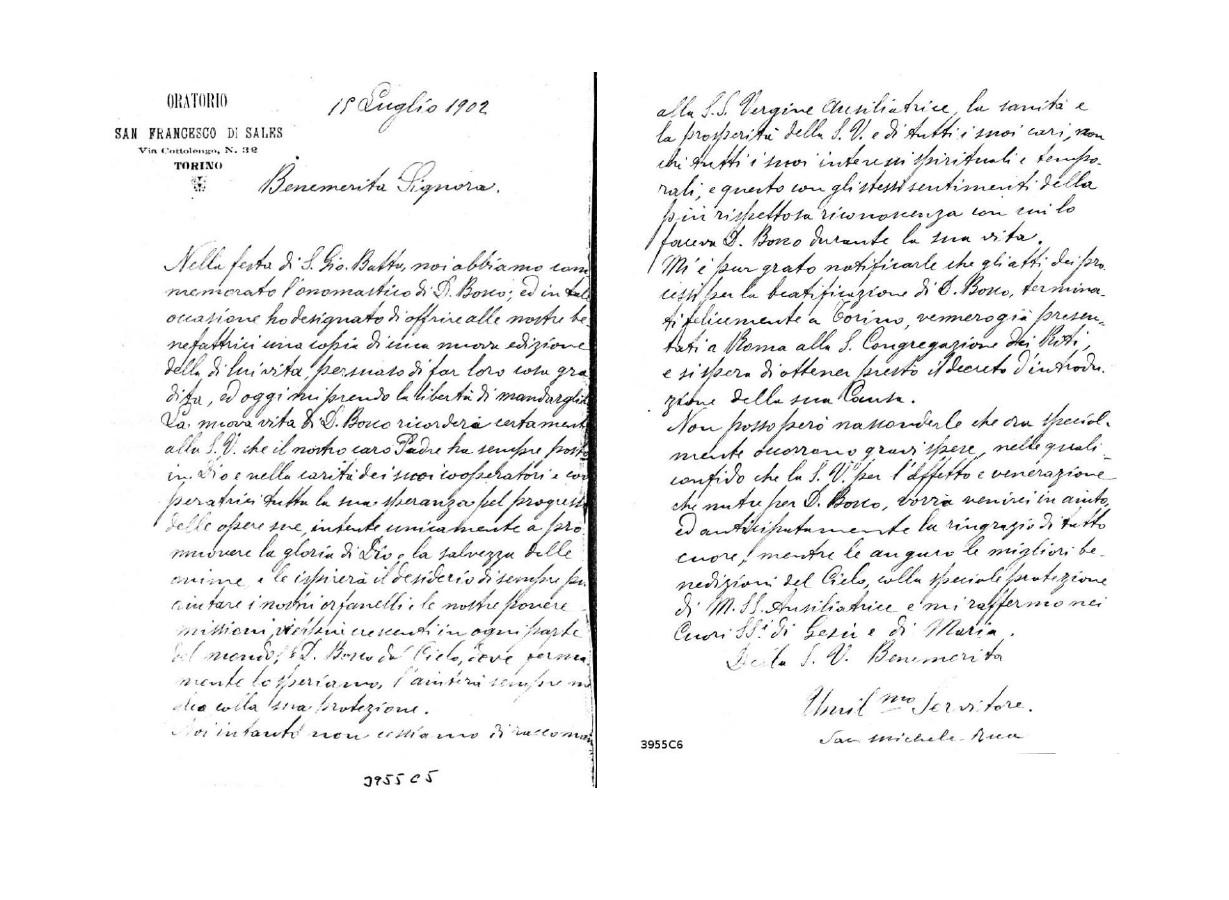 ORATORIO
SAN FRANCESCO DI SALES
Via Cottolengo, N. 32
TORINO
15 Luglio 1902
Benemerita Signora.
Nella festa di S. Gio. Batta, noi abbiamo com
memorato l'onomastico di D. Bosco; ed in tale
occasione ho designato di offrire alle nostre be
nefattrici una copia di una nuova edizione
della di lui vita, persuaso di far loro cosa gra
dita, ed oggi mi prendo la libertà di mandargliela
La nuova vita di D. Bosco ricorderà certamente
alla S. V. che il nostro caro Padre ha sempre posto
in Dio e nella carità dei suoi cooperatori e coo
peratrici tutta la sua speranza pel progresso
delle opere sue, intente unicamente a pro
muovere la gloria di Dio e la salvezza delle
anime, e le ispirerà il desiderio di sempre più
aiutare i nostri orfanelli e le nostre povere
missioni, crescenti in ogni parte
del mondo; e D. Bosco dal Cielo, dove ferma
mente lo speriamo, l'aiuterà sempre me
glio colla sua protezione.
Noi intanto non cessiamo di raccoman
3955C5
alla S.S. Vergine Ausiliatrice, la sanità e
la prosperità della S. V. e di tutti i suoi cari, non
chè tutti i suoi interessi spirituali e tempo-
rali, e questo con gli stessi sentimenti della
più rispettosa riconoscenza con cui lo
faceva D. Bosco durante la sua vita.
Mi è pur grato notificarle che gli atti dei pro
cessi per la beatificazione di D. Bosco, termina-
ti felicemente a Torino, vennero già presen-
tati a Roma alla S. Congregazione dei Riti,
e si spera di ottener presto il decreto d'introdu-
zione della sua Causa.
Non posso però nasconderle che ora special-
mente occorrono gravi spese, nelle quali
confido che la S. V. per l'affetto e venerazione
che nutre per D. Bosco, vorrà venirci in aiuto,
ed anticipatamente la ringrazio di tutto
cuore, mentre le auguro le migliori be-
nedizioni del Cielo, colla speciale protezione
di M. SS. Ausiliatrice e mi raffermo nei
Cuori SS.i di Gesù e di Maria.
Della S. V. Benemerita
Umil.mo Servitore.
Sac. Michele Rua
3955C6